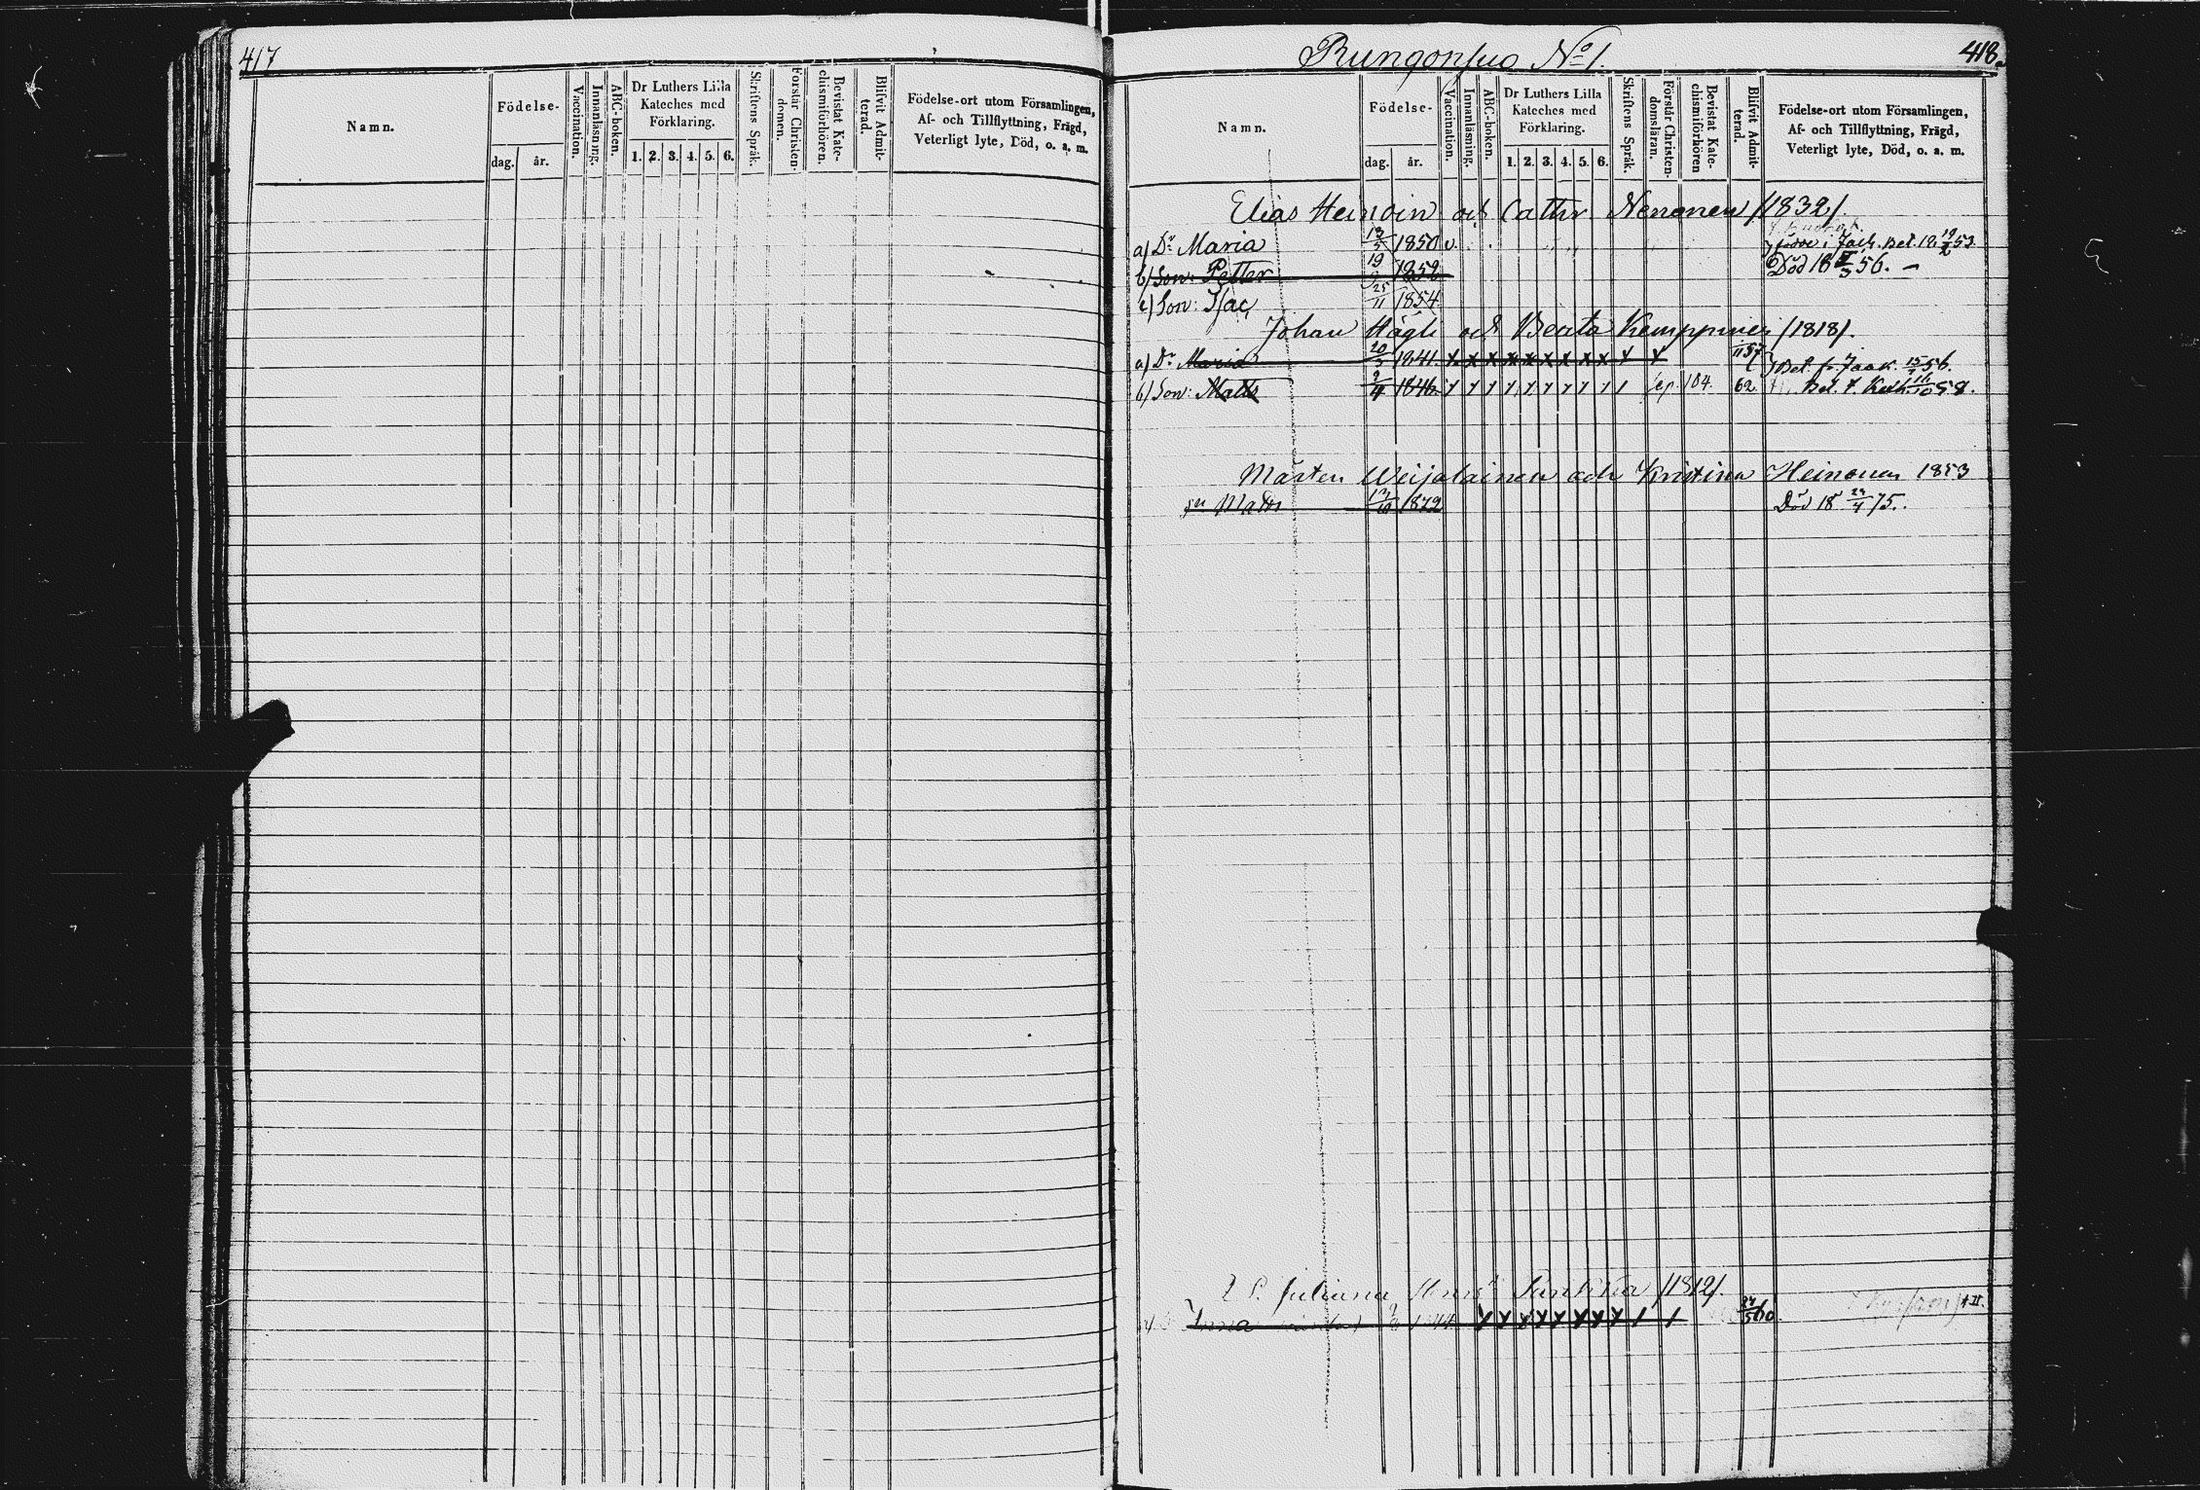 417
Namn.
Födelse-
dag. år.
Vaccination.
Innanläsning.
ABC-boken.
Dr Luthers Lilla
Kateches med
Förklaring.
1. 2. 3. 4. 5. 6.
Skriftens Språk.
Förstår Christen-
domen.
Bevistat Kate-
chismiförhören.
Blifvit Admit-
terad.
Födelse-ort utom Församlingen,
Af- och Tillflyttning, Frägd,
Veterligt lyte, Död, o. a. m.
Rungonsuo No 1.
418.
Namn.
Födelse-
dag. år.
Vaccination.
Innanläsning.
ABC-boken.
Dr Luthers Lilla
Kateches med
Förklaring.
1. 2. 3. 4. 5. 6.
Skriftens Språk.
Förstår Christen-
domsläran.
Bevistat Kate-
chismiförhören
Blifvit Admit-
terad.
Födelse-ort utom Församlingen,
Af- och Tillflyttning, Frägd,
Veterligt lyte, Död, o. a. m.
Elias Heinoin och Cathr Nenonen /1832/.
a) Dr Maria 13/5 1850 v. i Jack. Bet. 18 19/2 53.
b) Son: Petter 19 1852 Död 18 56. —
c) Son: Isac 25/11 1854
Johan Hägli och Beata Kemppinen /1818/.
a) Dr Maria 20/3 1841 x x x x x x x x x 57 Bet. fr. Jaak. 56.
b) Son: Matts 2/4 1846 104. 62 Bet. 58.
Mårten Weijalainen och Kristina Heinonen 1853
sn Matts 1872 Död 18 24/4 75.
Juliana /1812/.
Anna 24/5 60.